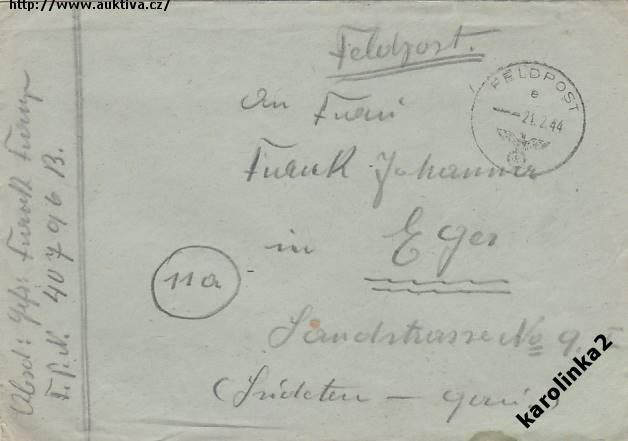 http://www.auktiva.cz/
Feldpost.
FELDPOST
e
21.2.44
An Frau
Frank Johanna
in Eger
11a
Sandstrasse No 9.
(Sudeten-
Absd: Gefr. Frank
F.P.N. 40796 B.
karolinka2